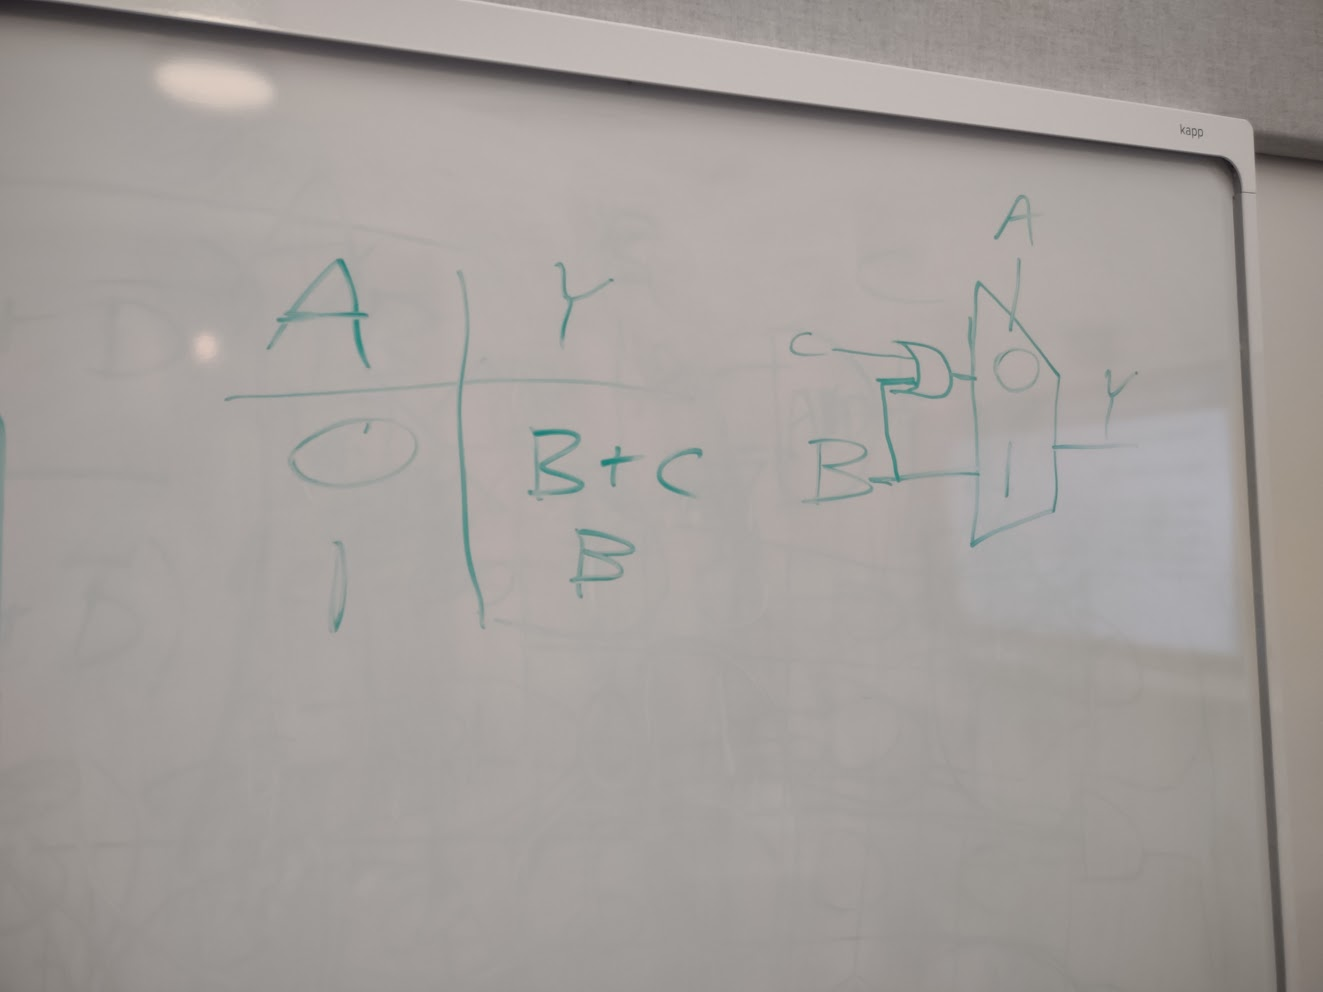 kapp
A Y
0 B+C
1 B
A
C
0
Y
B
1